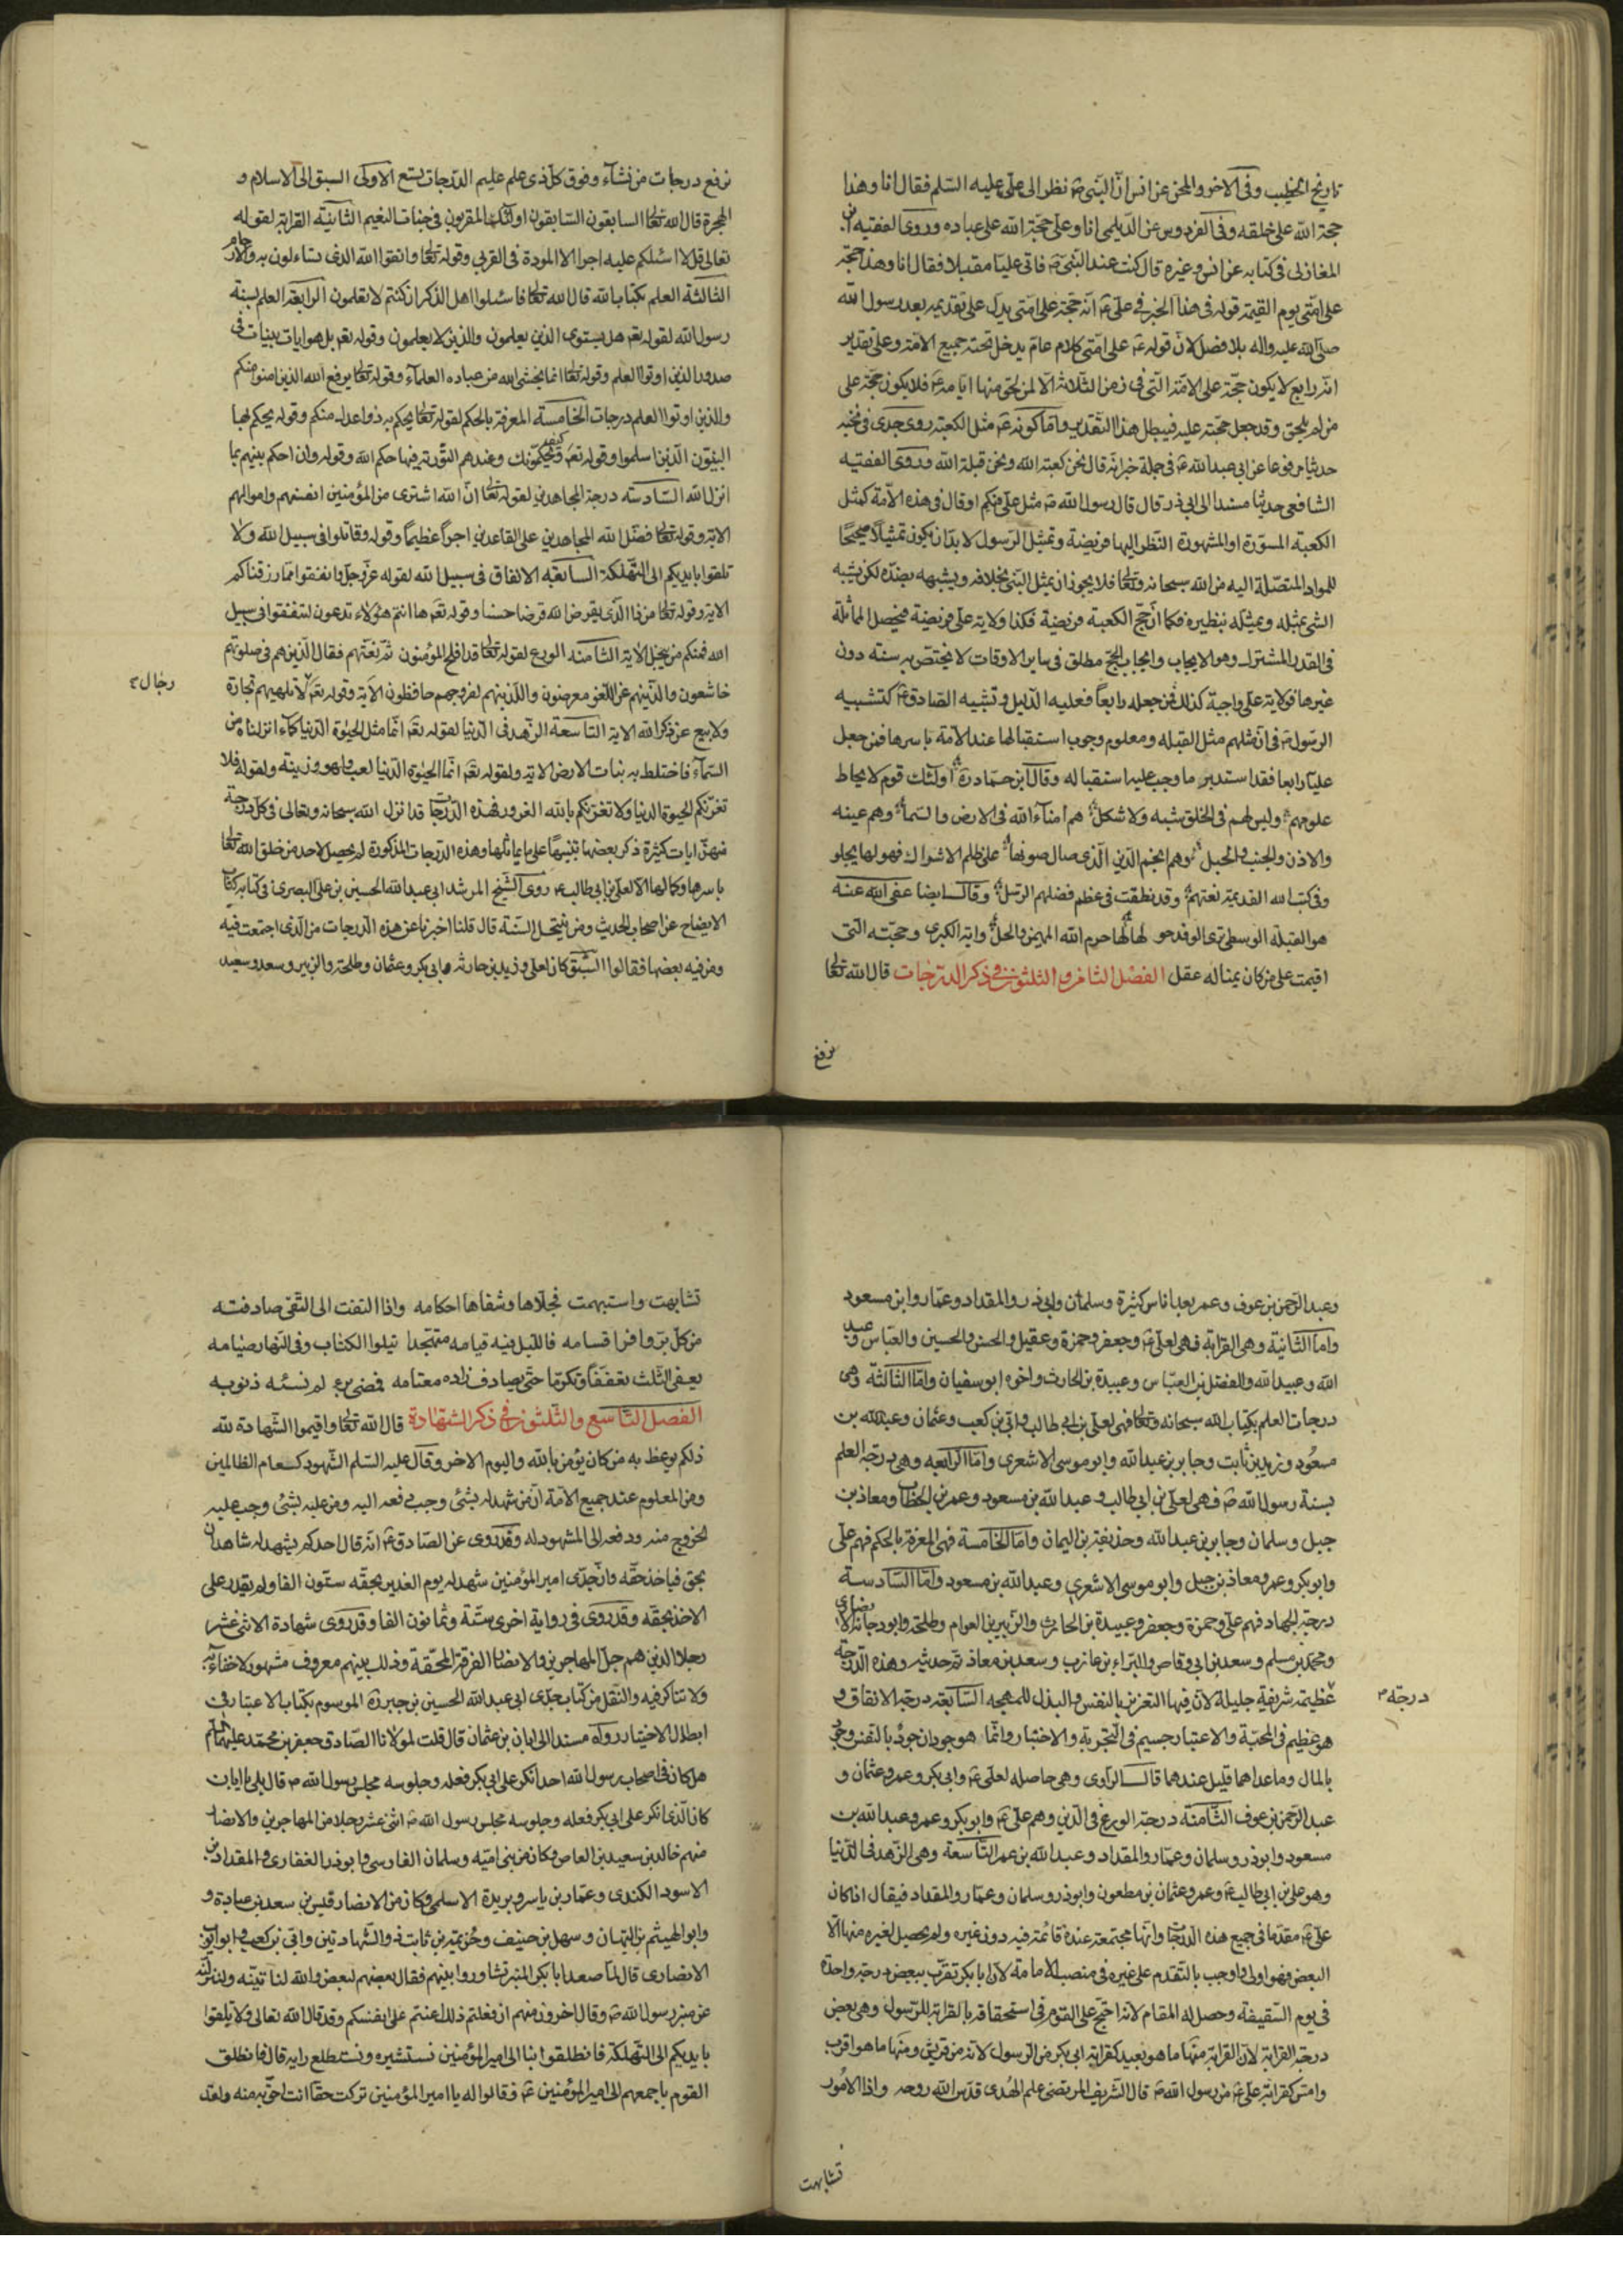 تاريخ الخطيب وفى الاخر والمحن عن انس انّ النّبى ص نظر الى علىّ عليه السّلم فقال انا وهذا
حجة الله على خلقه وفى الفردوس عن الدّيلمى انا وعلىّ حجّة الله على عباده وروى الفقيه ابن
المغازلى فى كتابه عن انس وغيره قال كنت عند النّبى ص فاتى عليّا مقبلا فقال انا وهذا حجّة
على امّتى يوم القيمة قوله فى هذا الخبر فى علىّ ع انّه حجّة على امّتى يدلّ على تقديمه بعد رسول الله
صلّى الله عليه واله بلا فصل لانّ قوله ع على امّتى كلام عامّ يدخل تحته جميع الامّة وعلى تقدير
انّه رابع لا يكون حجّة على الامّة الّتى فى زمن الثّلاثة الّا لمن لحق منها ايّامه ع فلا يكون حجّة على
من لم يلحق وقد جعل حجّته عليه فيبطل هذا التقدير وامّا كونه ع مثل الكعبة روى جدى فى نخبه
حديثا مرفوعا عن ابى عبد الله ع فى جملة خبر انّه قال نحن كعبة الله ونحن قبلة الله وروى الفقيه
الشافعى حديثا مسندا الى ابى ذر قال قال رسول الله ص مثل علىّ فيكم او قال فى هذه الامّة كمثل
الكعبة المستورة او المشهورة النّظر اليها فريضة وتمثيل الرّسول لا بدّ ان يكون تمثيلا صحيحًا
للمواد المتصّلة اليه من الله سبحانه وتعالى فلا يجوز ان يمثل الشئ بخلافه ويشبهه بضدّه لكن يشبه
الشئ بمثله ويمثّله بنظيره فكما انّ حجّ الكعبة فريضة فكذا ولاية علىّ فريضة فيحصل المماثلة
فى القدر المشترك وهو الايجاب وايجاب الحجّ مطلق فى ساير الاوقات لا يختصّ به سنة دون
غيرها فولاية علىّ واجبة كذلك فمن جعله رابعاً فعليه الدّليل وتشبيه الصّادق ع كتشبيه
الرّسول ص فى انّ مثلهم مثل القبلة ومعلوم وجوب استقبالها عند الامّة باسرها فمن جعل
عليّا رابعا فقد استدبر ما وجب عليه استقباله وقال ابن حمّاد ره اولئك قوم لا يحاط
علومهم وليس لهم فى الخلق شبه ولا شكل هم امناء الله فى الارض والسّما وهم عينه
والاذن والجنب والحبل وهم انجم الدّين الّذى صال صوئها على ظلم الاشراك فهو لها يجلو
وفى كتب الله القديمة نعتهم وقد نطقت فى عظم فضلهم الرّسل وقال ايضا عفى الله عنه
هو القبلة الوسطى ترى الوفد حو لها لها حرم الله المهيمن والحلّ واية الكبرى وحجّته الّتى
اقيمت على من كان يمناله عقل الفصل الثامن والثلثون فى ذكر الدّرجات قال الله تعالى
نرفع
نرفع درجات من نشآء وفوق كلّ ذى علم عليم الدّرجات تسع الاولى السبق الى الاسلام و
الهجرة قال الله تعالى السابقون السّابقون اولئك المقربون فى جنات النعيم الثانية القرابة لقوله
تعالى قل لا اسئلكم عليه اجرا الا المودة فى القربى وقوله تعالى واتقوا الله الذى تساءلون به والارحام
الثالثة العلم بكتاب الله قال الله تعالى فاسئلوا اهل الذّكر ان كنتم لا تعلمون الرابعة العلم بسنة
رسول الله لقوله تعه هل يستوى الذين يعلمون والذين لا يعلمون وقوله تعه بل هو ايات بينات فى
صدور الذين اوتوا العلم وقوله تعالى انما يخشى الله من عباده العلمآء وقوله تعالى يرفع الله الذين امنوا منكم
والذين اوتوا العلم درجات الخامسة المعرفة بالحكم لقوله تعالى يحكم به ذوا عدل منكم وقوله يحكم بها
النبيّون الّذين اسلموا وقوله تعه وكيف يحكّمونك وعندهم التّورية فيها حكم الله وقوله وان احكم بينهم بما
انزل الله السّادسة درجة المجاهدين لقوله تعالى انّ الله اشترى من المؤمنين انفسهم واموالهم
الاية وقوله تعالى فضّل الله المجاهدين على القاعدين اجراً عظيماً وقوله وقاتلوا فى سبيل الله ولا
تلقوا بايديكم الى التّهلكة السابعة الانفاق فى سبيل الله لقوله عزّ وجلّ وانفقوا ممّا رزقناكم
الاية وقوله تعالى من ذا الّذى يقرض الله قرضا حسنا وقوله تعه ها انتم هؤلاء تدعون لتنفقوا فى سبيل
الله فمنكم من يبخل الاية الثامنة الورع لقوله تعالى قد افلح المؤمنون ثمّ نعتهم فقال الّذين هم فى صلوتهم
خاشعون والّذين هم عن اللّغو معرضون والّذين هم لفروجهم حافظون الاية وقوله تعه لا تلهيهم تجارة
رجال
ولا بيع عن ذكر الله الاية التاسعة الزّهد فى الدّنيا لقوله تعه انّما مثل الحيوة الدّنيا كمآء انزلناه من
السّمآء فاختلط به نبات الارض الاية ولقوله تعه انّما الحيوة الدّنيا لعب ولهو وزينة ولقوله فلا
تغرّنّكم الحيوة الدنيا ولا تغرّنّكم بالله الغرور فهذه الدّرجات قد انزل الله سبحانه وتعالى فى كل درجة
منهنّ ايات كثيرة ذكر بعضها تنبيهًا على ما يماثلها وهذه الدّرجات المذكورة لم يحصل لاحد من خلق الله تعالى
باسرها وكمالها الّا لعلىّ بن ابى طالب ع روى الشّيخ المرشد ابى عبد الله الحسين بن علىّ البصرى فى كتابه كتاب
الايضاح عن اصحاب الحديث ومن ينتحل السّنة قال قلنا اخبرنا عن هذه الدّرجات من الّذى اجتمعت فيه
ومن فيه بعضها فقالوا السّبق كان لعلى وزيد بن حارثة وابى بكر وعثمان وطلحة والزبير وسعد وسعيد
وعبد الرّحمن بن عوف وعمر بعد اناس كثيرة وسلمان وابى ذر والمقداد وعمّار وابن مسعود
وامّا الثّانية وهى القرابة فهى لعلىّ ع وجعفر وحمزة وعقيل والحسن والحسين والعبّاس وعبد
الله وعبيد الله والفضل بن العبّاس وعبيدة بن الحارث واخوه ابو سفيان وامّا الثالثة وهى
درجات العلم بكتاب الله سبحانه وتعالى فهى لعلىّ بن ابى طالب وابىّ بن كعب وعثمان وعبد الله بن
مسعُود وزيد بن ثابت وجابر بن عبد الله وابو موسى الاشعرى وامّا الرّابعه وهى درجة العلم
بسنة رسول الله ص فهى لعلىّ بن ابى طالب وعبد الله بن مسعود وعمر بن الخطّاب ومعاذ بن
جبل وسلمان وجابر بن عبد الله وحذيفة بن اليمان وامّا الخامسة فهى المعرفة بالحكم فهم علىّ
وابو بكر وعمر ومعاذ بن جبل وابو موسى الاشعرى وعبد الله بن مسعود وامّا السّادسة
درجة الجهاد فهم علىّ وحمزة وجعفر وعبيدة بن الحارث والزّبير بن العوام وطلحة وابو دجانة الانصارى
ومحمّد بن مسلم وسعد بن ابى وقاص والبراء بن عازب وسعد بن معاذ ثمّ حديثه وهذه الدّرجة
عظيمة شريفة جليلة لانّ فيها التعزير بالنفس والبذل للمهجه السّابعة درجة الانفاق و
درجة
هو عظيم فى المحبّة والاعتبار جسيم فى التّجربة والاختبار وانّما هو جودان جودٌ بالنفس وجود
بالمال وما عداهما قليل عندهما قال الرّاوى وهى حاصله لعلى ع وابى بكر وعمر وعثمان و
عبد الرّحمن بن عوف الثّامنة درجة الورع فى الدّين وهم علىّ ع وابو بكر وعمر وعبد الله بن
مسعود وابو ذر وسلمان وعمّار والمقداد وعبد الله بن عمر التّاسعة وهى الزّهد فى الدّنيا
وهو على بن ابى طالب ع وعمر وعثمان بن مظعون وابو ذر وسلمان وعمّار والمقداد فيقال اذا كان
علىّ ع مقدّما فى جميع هذه الدّرجات وانّها مجتمعة عنده قائمة فيه دون غيره ولم يحصل لغيره منها الّا
البعض فهو اولى واوجب بالتّقدم على غيره فى منصب الامامة لانّ ابا بكر تقرّب ببعض درجة واحدة
فى يوم السّقيفة وحصل له المقام لانه احتجّ على القوم فى استحقاقه بالقرابة للرّسول وهى بعض
درجة القرابة لانّ القرابة منها ما هو بعيد كقرابة ابى بكر من الرّسول لانّه من قريش ومنها ما هو اقرب
وامتن كقرابة علىّ ع من رسول الله ص قال الشّريف المرتضى علم الهُدى قدّس الله روحه واذا الامُور
تشابهت
تشابهت واستبهمت فجلاها وشفاها احكامه واذا التفت الى التّقى صادفته
من كلّ برّ وافرا اقسامه فاللّيل فيه قيامه متهجّدا يتلوا الكتاب وفى النّهار صيامه
يعفى الثّلث تعفّفاً وتكرّما حتّى يصادف زاده معتامه فمضى بر لم نشئه ذنوبه
الفصل التّاسع والثّلثون فى ذكر الشّهادة قال الله تعالى واقيموا الشّهادة لله
ذلكم يوعظ به من كان يؤمن بالله واليوم الاخر وقال عليه السّلم الشّهود كسهام الظالمين
ومن المعلوم عند جميع الامّة انّ من شهد له بشئ وجب دفعه اليه ومن عليه بشئ وجب عليه
الخروج منه ودفعه الى المشهود له وقد روى عن الصّادق ع انّه قال احدكم يشهد له شاهدان
بحق فياخذ حقّه وانّ جدّى امير المؤمنين شهد له يوم الغدير بحقّه ستّون الفا ولم يقدر على
الاخذ بحقّه وقد روى فى رواية اخرى ستّة وثمانون الفا وقد روى شهادة الاثنى عشر
رجلا الذين هم جلّ المهاجرين والانصار الفرقة المحقّقة وذلك بينهم معروف مشهور لا خفاء به
ولا تناكر فيه والنّقل من كتاب جدّى ابى عبد الله الحسين بن جبر ره الموسوم بكتاب الاعتبار فى
ابطال الاختيار رواه مسندا الى ابان بن عثمان قال قلت لمولانا الصّادق جعفر بن محمّد عليهما السّلم
هل كان فى اصحاب رسول الله احد انكر على ابى بكر فعله وجلوسه مجلس رسول الله ص قال بلى يا ابان
كان الّذى انكر على ابى بكر فعله وجلوسه مجلس رسول الله ص اثنى عشر رجلا من المهاجرين والانصار
منهم خالد بن سعيد بن العاص وكان من بنى اميّه وسلمان الفارسى وابو ذر الغفارى والمقداد بن
الاسود الكندى وعمّار بن ياسر وبريدة الاسلمى وكان من الانصار قيس بن سعد بن عبادة و
وابو الهيثم بن التيهان وسهل بن حنيف وخُزيمة بن ثابت ذو الشّهادتين وابىّ بن كعب وابو ايّوب
الانصارى قال لمّا صعد ابا بكر المنبر تشاوروا بينهم فقال بعضهم لبعض والله لناتينّه ولننزلنّه
عن منبر رسول الله ص وقال اخرون منهم ان فعلتم ذلك اعنتم على انفسكم وقد قال الله تعالى ولا تلقوا
بايديكم الى التّهلكة فانطلقوا بنا الى امير المؤمنين نستشيره ونستطلع رايه قال فانطلق
القوم باجمعهم الى امير المؤمنين ع فقالوا له يا امير المؤمنين تركت حقّا انت احقّ به منه ولقد